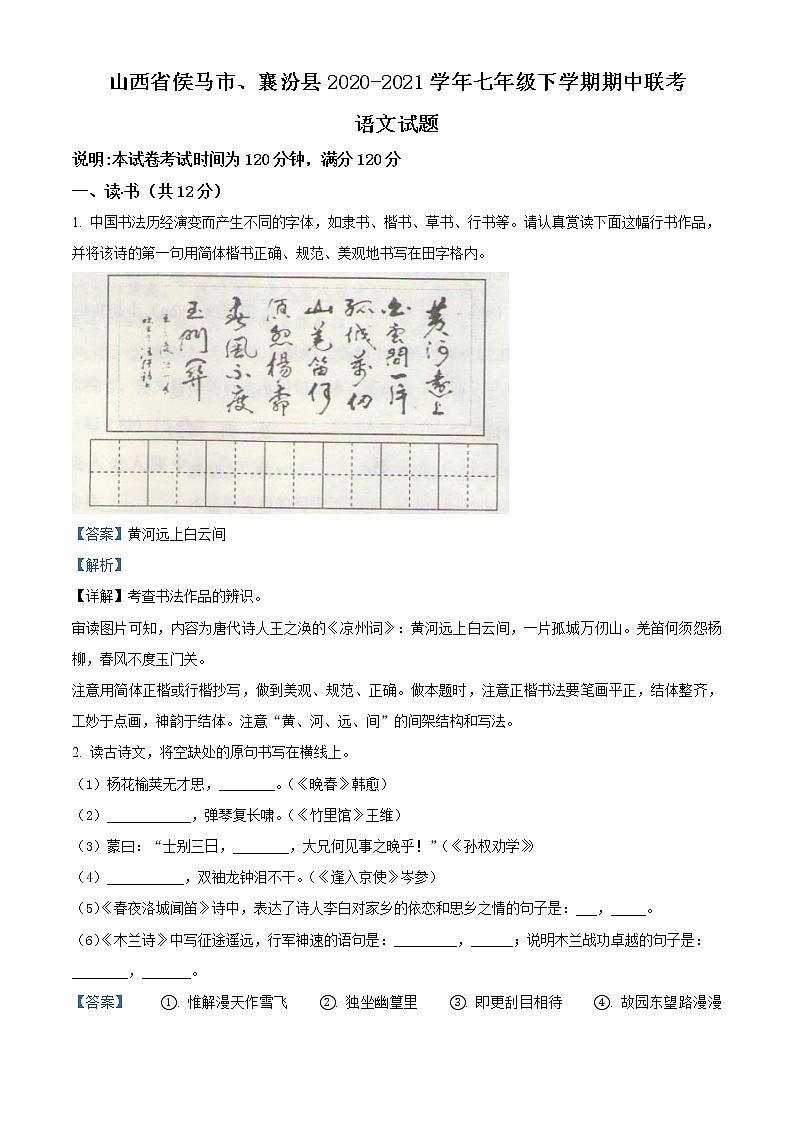 山西省侯马市、襄汾县2020-2021学年七年级下学期期中联考
语文试题
说明:本试卷考试时间为120分钟，满分120分
一、读·书（共12分）
1. 中国书法历经演变而产生不同的字体，如隶书、楷书、草书、行书等。请认真赏读下面这幅行书作品，
并将该诗的第一句用简体楷书正确、规范、美观地书写在田字格内。
黄河远上
白云间一片
孤城万仞
山羌笛何
须怨杨柳
春风不度
玉门关
【答案】黄河远上白云间
【解析】
【详解】考查书法作品的辨识。
审读图片可知，内容为唐代诗人王之涣的《凉州词》：黄河远上白云间，一片孤城万仞山。羌笛何须怨杨
柳，春风不度玉门关。
注意用简体正楷或行楷抄写，做到美观、规范、正确。做本题时，注意正楷书法要笔画平正，结体整齐，
工妙于点画，神韵于结体。注意“黄、河、远、间”的间架结构和写法。
2. 读古诗文，将空缺处的原句书写在横线上。
（1）杨花榆荚无才思，________。（《晚春》韩愈）
（2）____________，弹琴复长啸。（《竹里馆》王维）
（3）蒙曰：“士别三日，________，大兄何见事之晚乎！”（《孙权劝学》）
（4）___________，双袖龙钟泪不干。（《逢入京使》岑参）
（5）《春夜洛城闻笛》诗中，表达了诗人李白对家乡的依恋和思乡之情的句子是：___，_____。
（6）《木兰诗》中写征途遥远，行军神速的语句是：_________，______；说明木兰战功卓越的句子是：
________，_______。
【答案】 ①. 惟解漫天作雪飞 ②. 独坐幽篁里 ③. 即更刮目相待 ④. 故园东望路漫漫